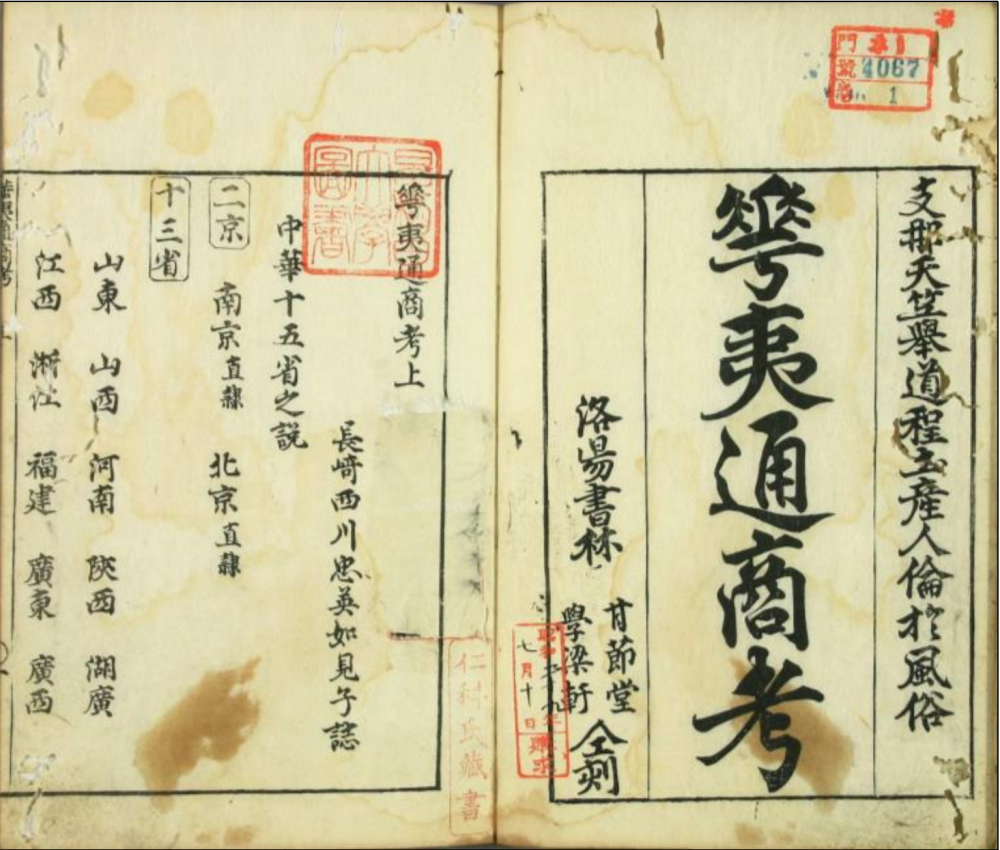 門
號 4067
巻 1
支那天竺舉道程土産人倫於風俗
華夷通商考
洛陽書林
甘節堂
學梁軒
仝刻
七月十日
購求
大學
圖書
華夷通商考上
長崎西川忠英如見子誌
中華十五省之説
二京 南京直隷 北京直隷
十三省
山東 山西 河南 陝西 湖廣
江西 淅江 福建 廣東 廣西
仁科氏藏書